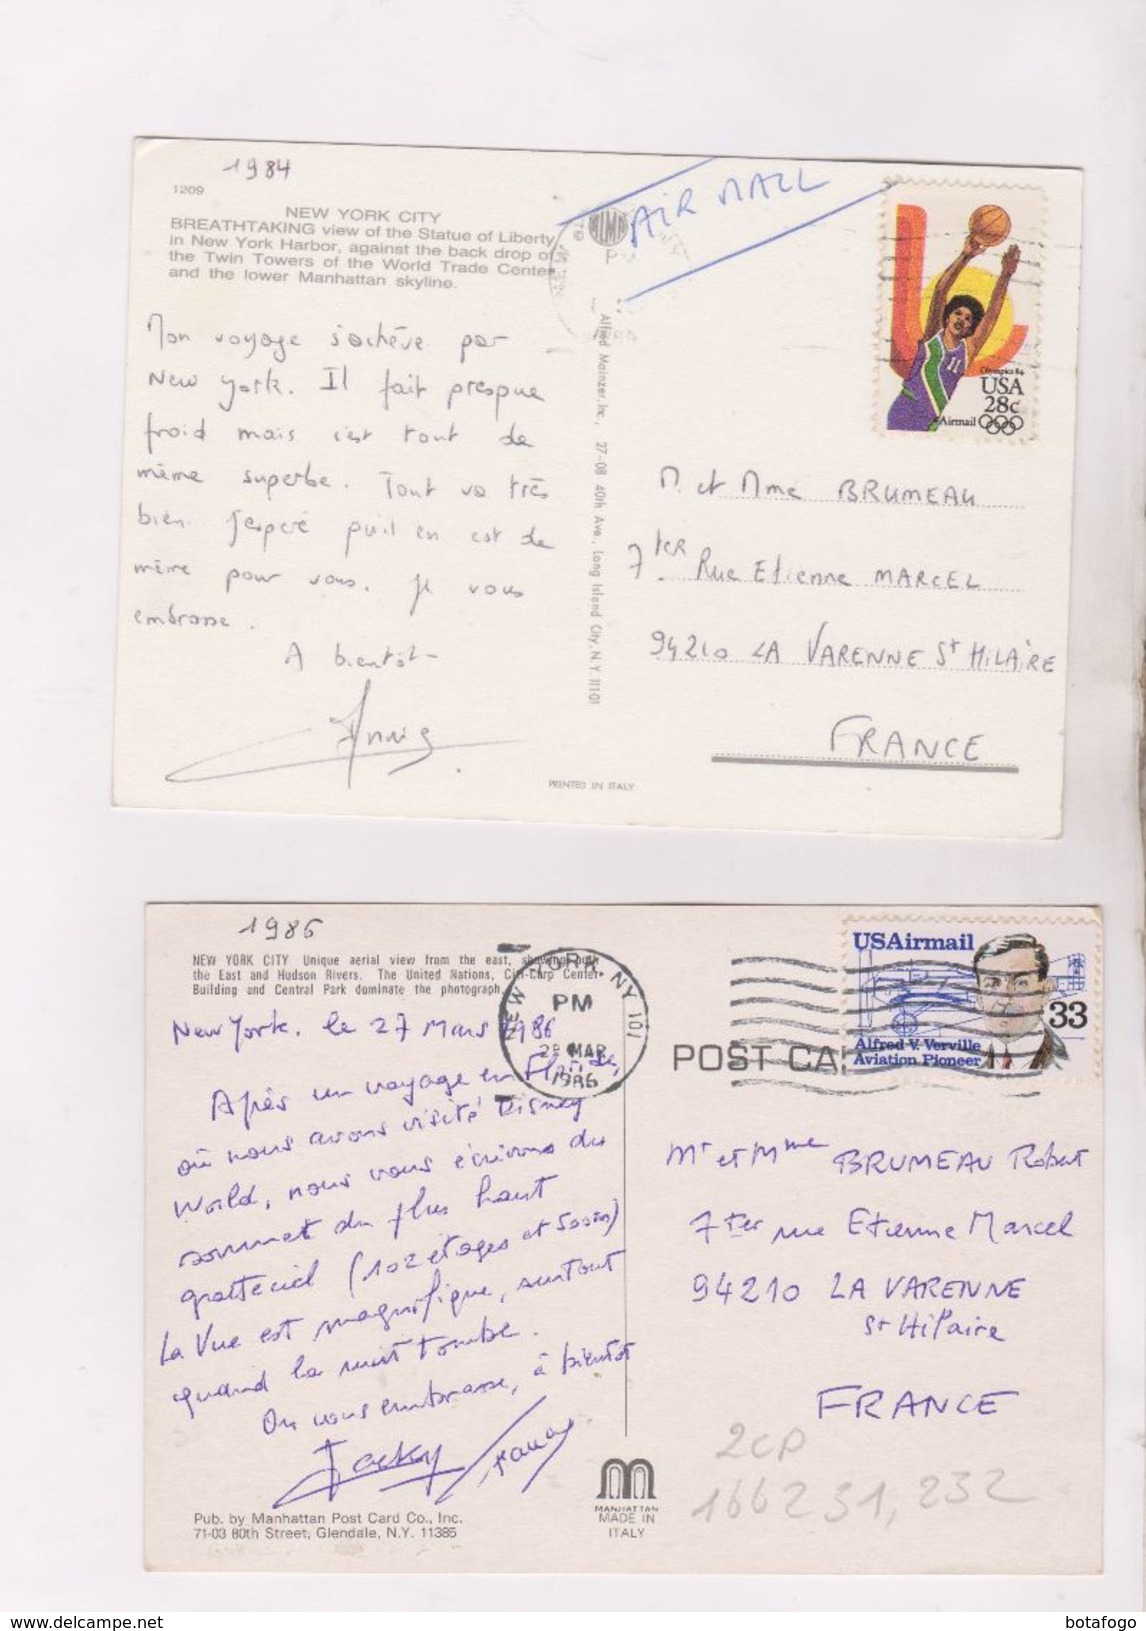 1984
1209
NEW YORK CITY
BREATHTAKING view of the Statue of Liberty
in New York Harbor, against the back drop of
the Twin Towers of the World Trade Center
and the lower Manhattan skyline.
AIR MAIL
Mon voyage s'achève par
New York. Il fait presque
froid mais c'est tout de
même superbe. Tout va très
bien. J'espère qu'il en est de
même pour vous. Je vous
embrasse.
A bientôt
Alfred Mainzer, Inc., 27-08 40th Ave., Long Island City, N.Y. 11101
Olympics 84
USA
28c
Airmail
M. et Mme BRUMEAU
7 ter Rue Etienne MARCEL
94210 LA VARENNE St HILAIRE
FRANCE
PRINTED IN ITALY
1986
NEW YORK CITY Unique aerial view from the east, showing both
the East and Hudson Rivers. The United Nations, Citi-Corp Center
Building and Central Park dominate the photograph.
New York, le 27 Mars 1986
Après un voyage en Floride,
où nous avons visité Disney
World, nous vous écrivons du
sommet du plus haut
gratteciel (102 étages et 500m)
La Vue est magnifique, surtout
quand la nuit tombe.
On vous embrasse, à bientôt
Jacky
NEW YORK, NY 101
PM
28 MAR
1986
POST CA
USAirmail
33
Alfred V. Verville
Aviation Pioneer
Mr et Mme BRUMEAU Robert
7 ter rue Etienne Marcel
94210 LA VARENNE
St Hilaire
FRANCE
2CP
166231, 232
Pub. by Manhattan Post Card Co., Inc.
71-03 80th Street, Glendale, N.Y. 11385
MANHATTAN
MADE IN
ITALY
https://www.delcampe.net
botafogo